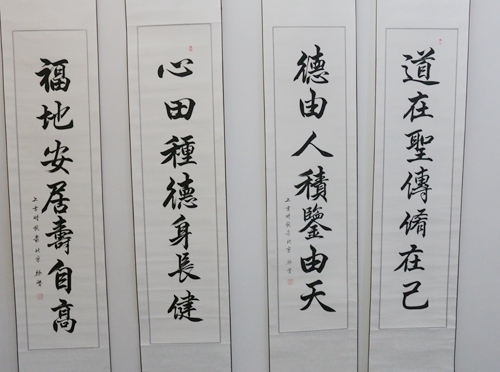 道在聖傳脩在己
德由人積鑒由天
心田種德身長健
福地安居壽自高